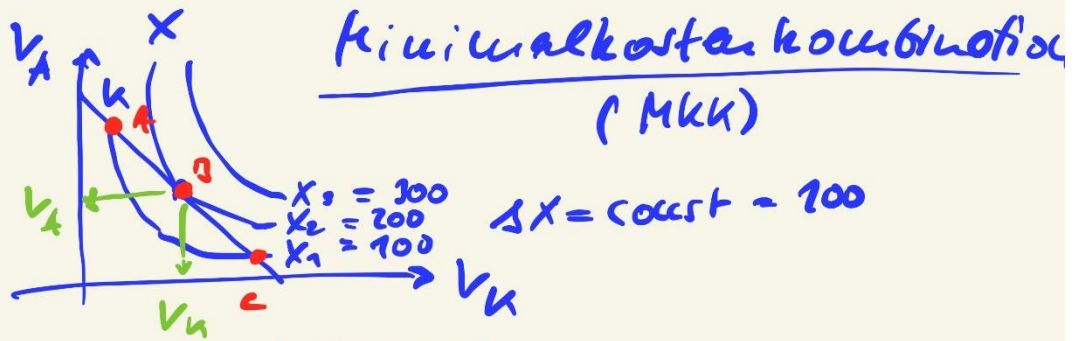 Minimalkostenkombination
(MKK)
V_A
X
K
A
B
V_A
X_3 = 300
X_2 = 200
X_1 = 100
ΔX = const = 100
C
V_K
V_K